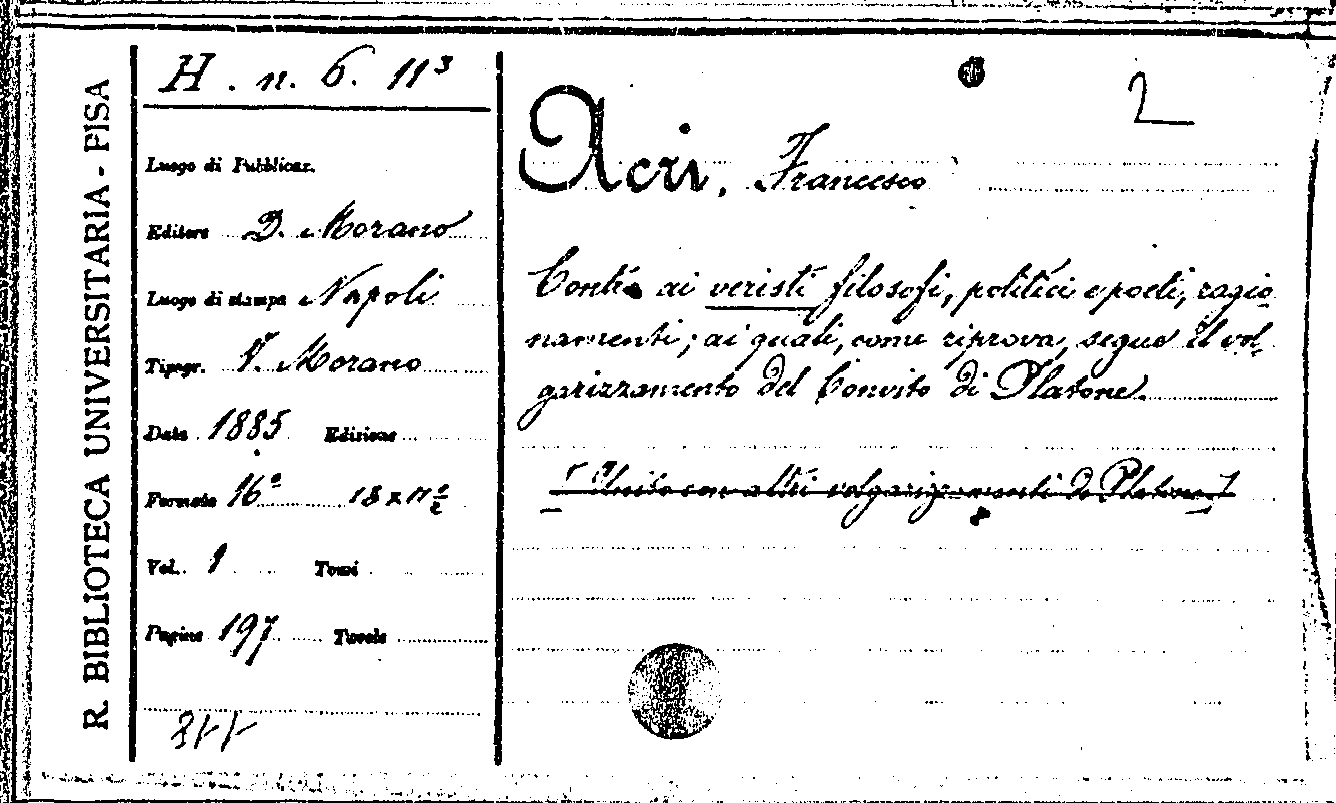 R. BIBLIOTECA UNIVERSITARIA - PISA
H. n. 6. 11³
Luogo di Pubblicaz.
Editore D. Morano
Luogo di stampa Napoli
Tipogr. V. Morano
Data 1885 Edizione
Formato 16° 18 x 11½
Vol. 1 Tomi
Pagine 197 Tavole
2
Acri, Francesco
ai veristi filosofi, politici e poeti, ragio-
namenti; ai quali, come riprova, segue il vol-
garizzamento del Convito di Platone.
con altri volgarizzamenti di Platone